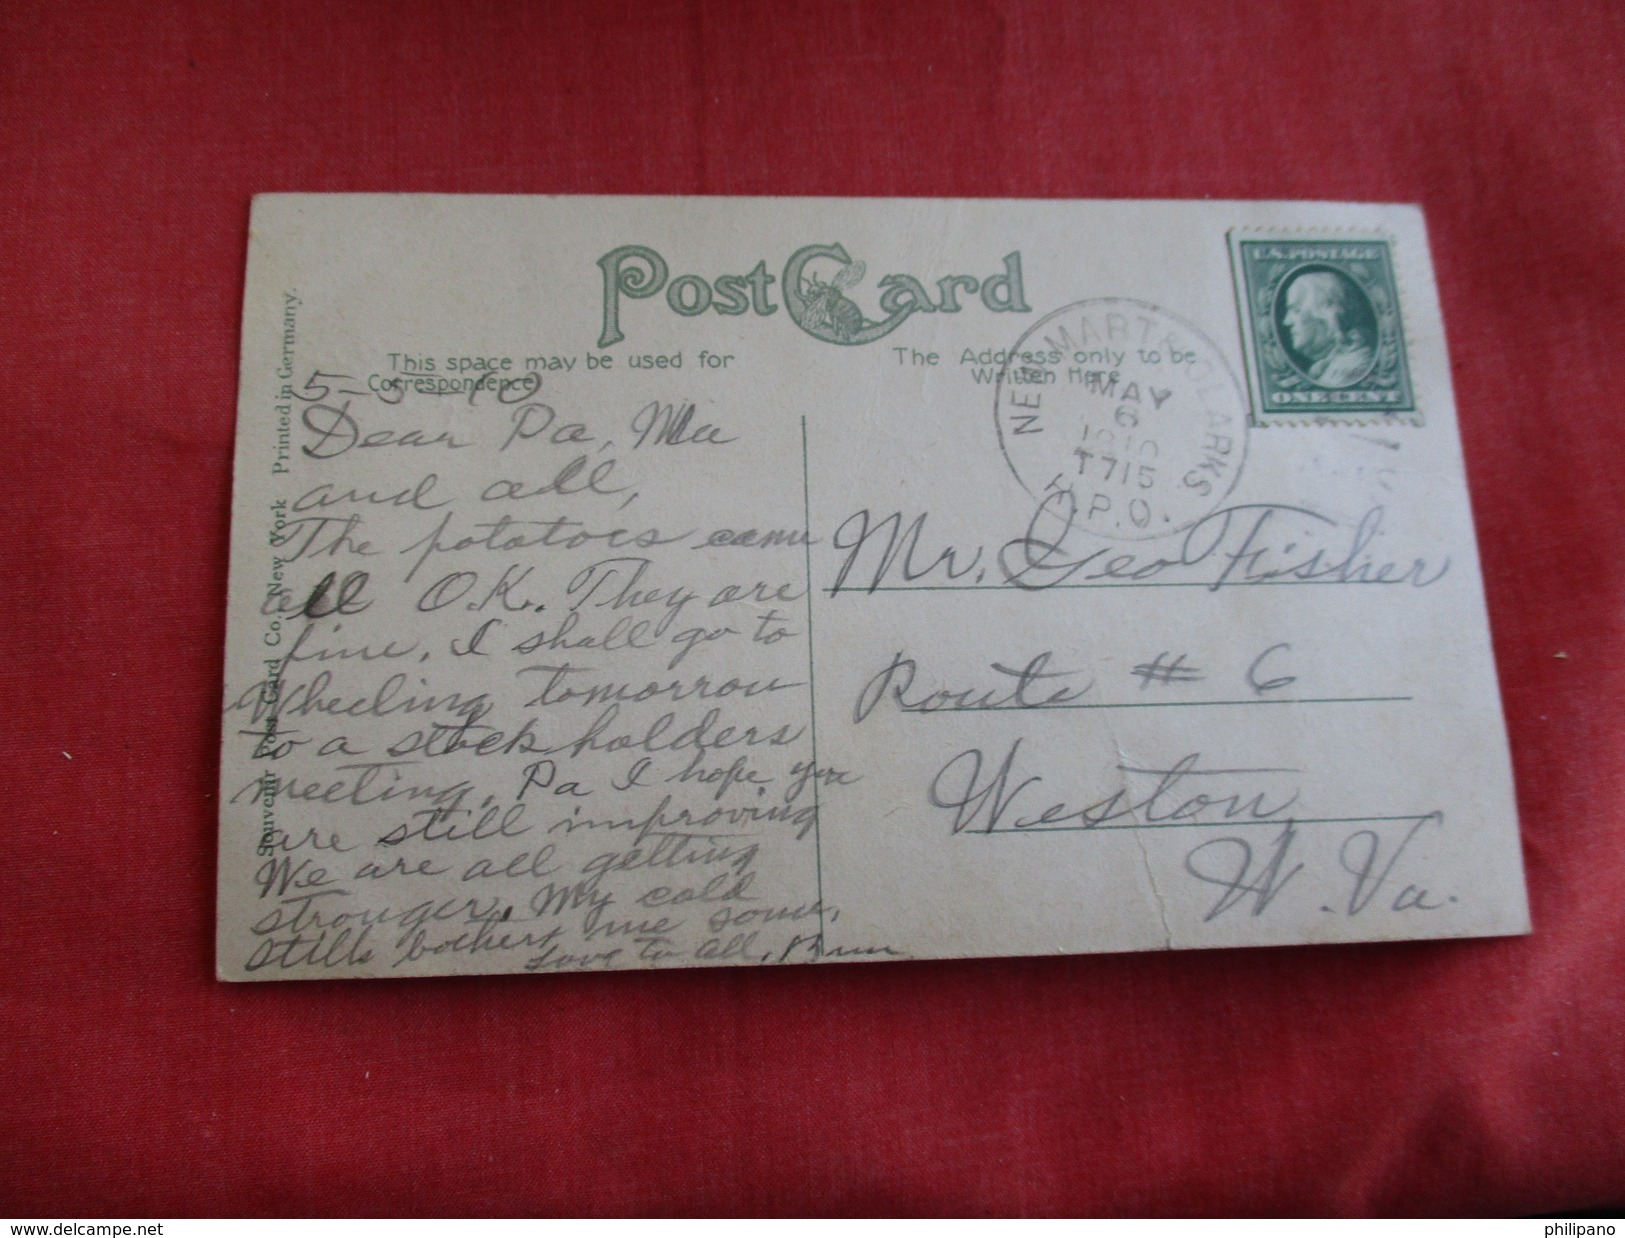 Post Card
This space may be used for
Correspondence
The Address only to be
Written Here
U.S. POSTAGE
ONE CENT
NEW MART & CLARKS.
MAY
6
1910
T 715
R.P.O.
5-5-10
Dear Pa, Ma
and all,
The potatoes came
all O.K. They are
fine. I shall go to
Wheeling tomorrow
to a stock holders
meeting. Pa I hope you
are still improving
We are all getting
stronger. My cold
stills bothers me some.
Love to all,
Mr. Geo Fisher
Route # 6
Weston
W. Va.
Souvenir Post Card Co., New York Printed in Germany.
delcampe.net
philipano